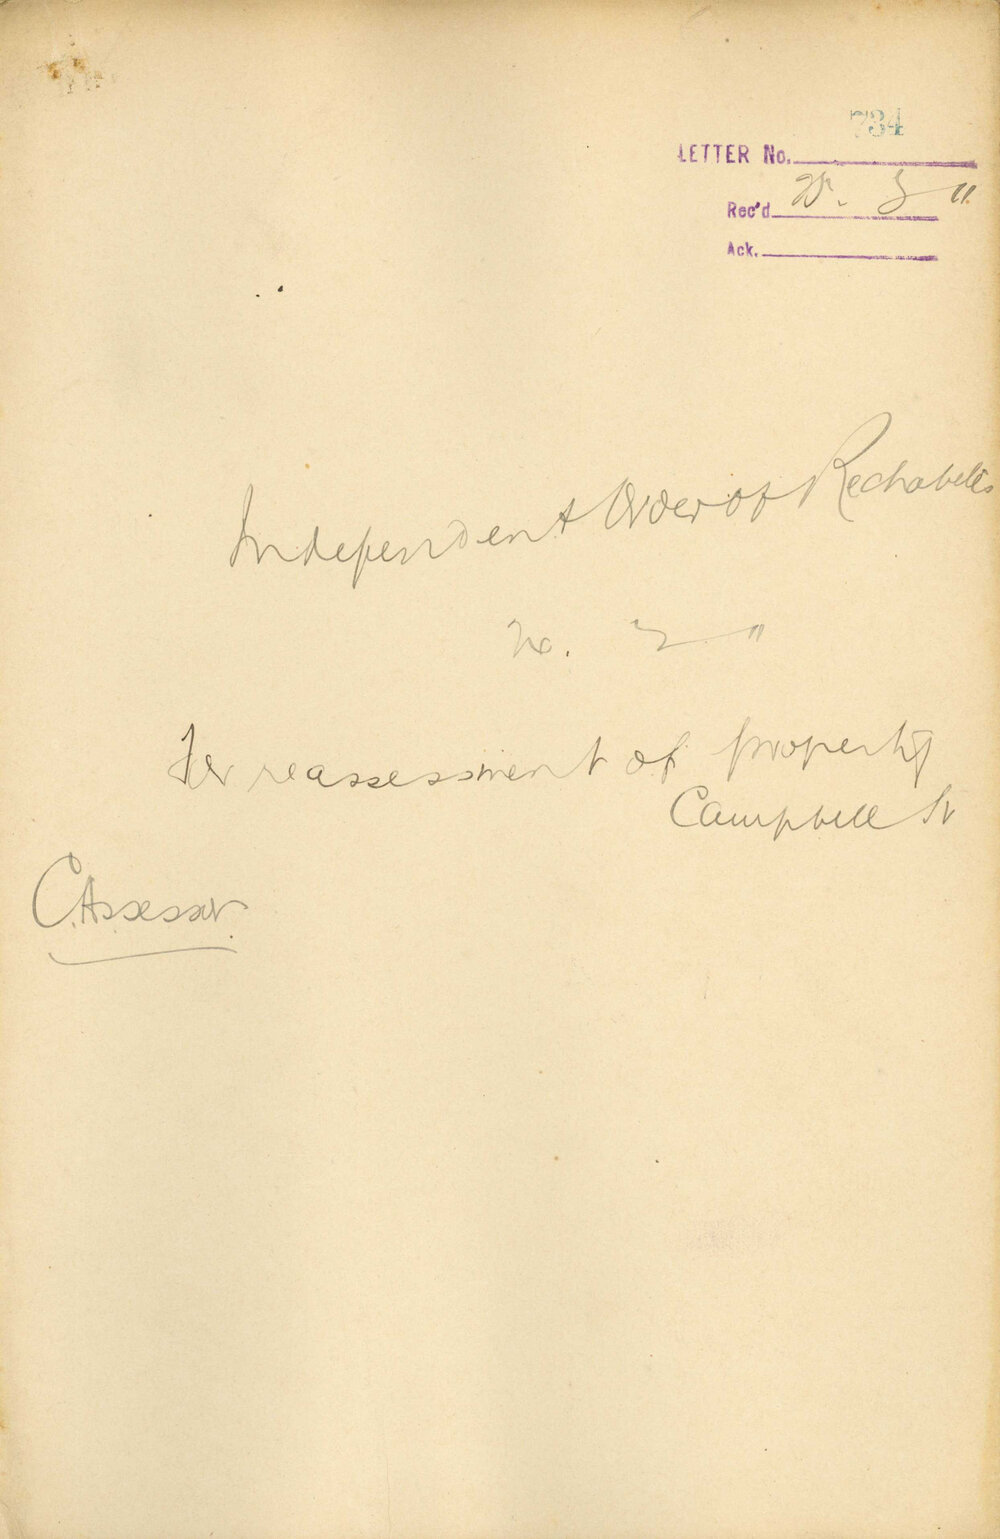 734
LETTER No.
Rec'd 11
Ack.
Independent Order of Rechabites
11
For reassessment of property
Campbell St
C. Assessor.